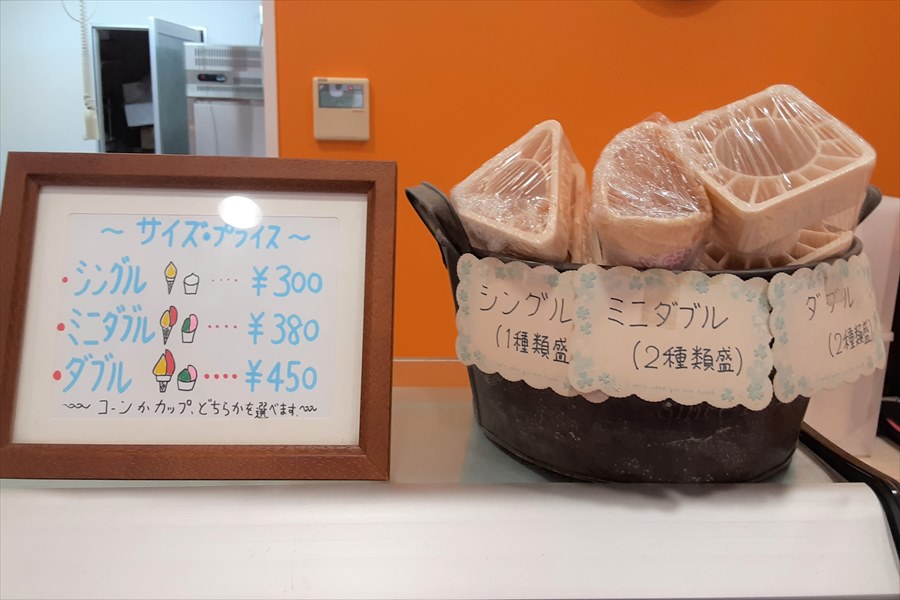 ～ サイズ・プライス ～
・シングル ····· ¥300
・ミニダブル ···· ¥380
・ダブル ····· ¥450
コーンかカップ、どちらかを選べます。
シングル
(1種類盛
ミニダブル
(2種類盛)
ダブル
(2種類盛)